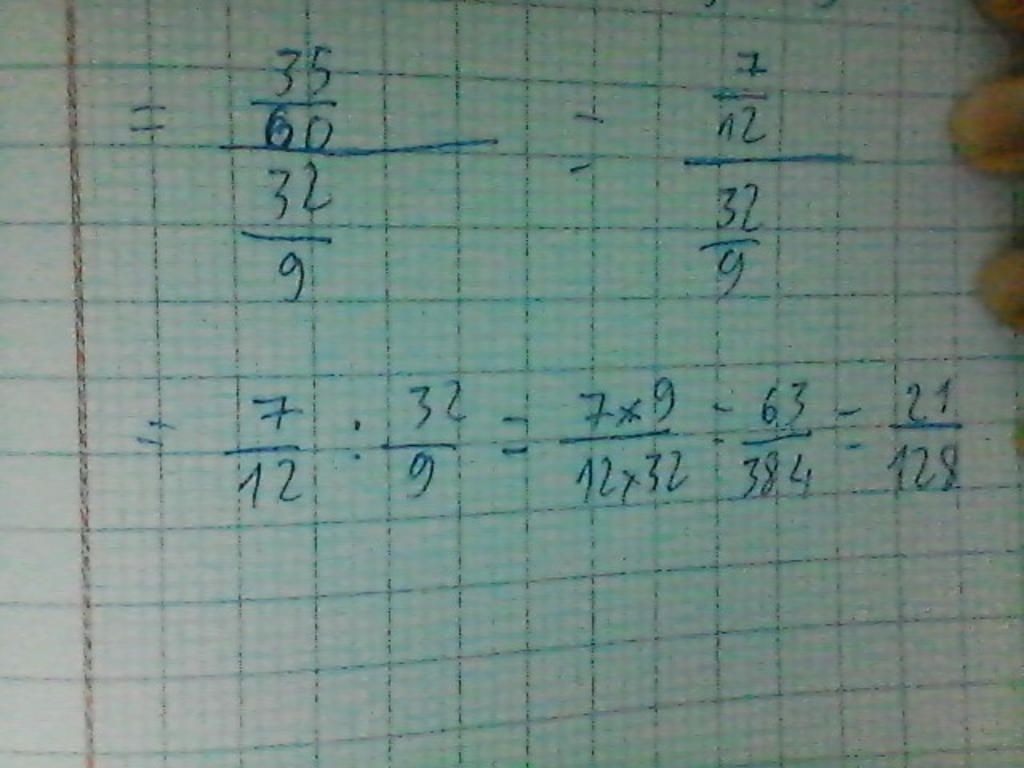 = 35/60 / 32/9 = 7/12 / 32/9
= 7/12 : 32/9 = 7×9/12×32 = 63/384 = 21/128